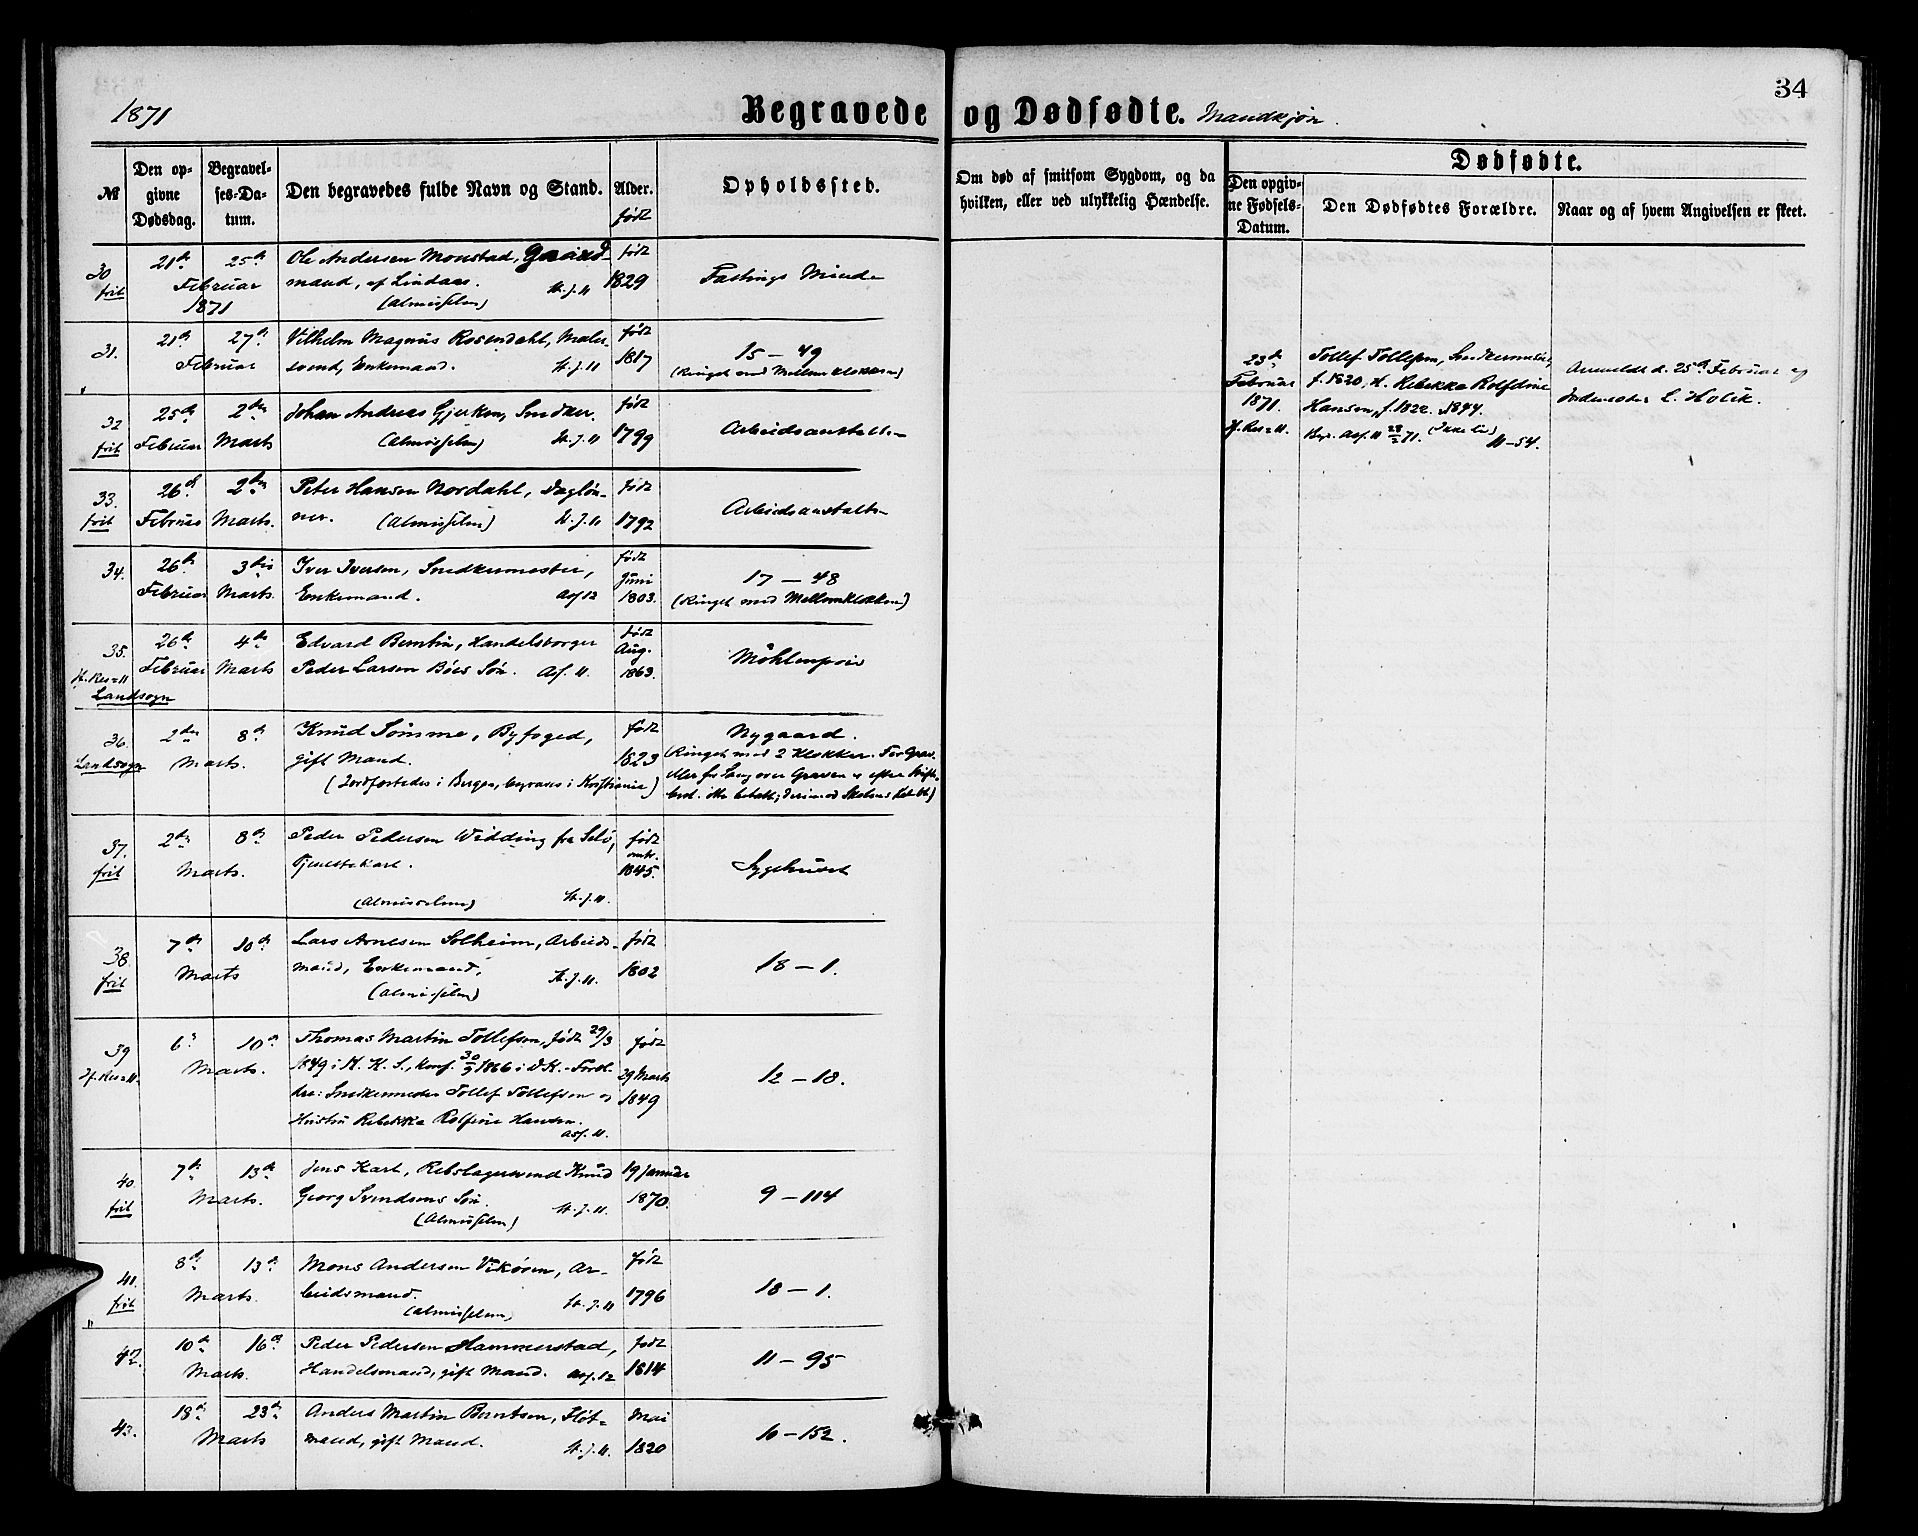 34
1871
Begravede og Dødfødte. Mandkjøn.
№
Den opgivne Dødsdag.
Begravelses-Datum.
Den begravedes fulde Navn og Stand.
Alder.
født
Opholdssted.
Om død af smitsom Sygdom, og da hvilken, eller ved ulykkelig Hændelse.
Dødfødte.
Den opgivne Fødsels-Datum.
Den Dødfødtes Forældre.
Naar og af hvem Angivelsen er skeet.
30 21de 25de Ole Andersen Monstad, Gaard- født
frit Februar mand, af Lindaas. St. J. 11 1829 Fastings Minde
1871 (Almisselem)
31. 21de 27de Vilhelm Magnus Rosendahl, Maler- født
Februar svend, Enkemand. St. J. 11 1817 15 – 49
(Ringet med Mellemklokken)
32 25de 2den Johan Andreas Gjerken, Snedker. født
frit Februar Marts (Almisselem) St. J. 11 1799 Arbeidsanstalten
33. 26de 2den Peter Hansen Nordahl, Dagløn- født
frit Februar Marts. ner. (Almisselem) St. J. 11 1792 Arbeidsanstalten
34. 26de 3die Iver Iversen, Snedkermester, født Juni 1803.
Februar Marts. Enkemand. Asf 12 17 – 48
(Ringet med Mellemklokken)
35. 26de 4de Edvard Berntin, Handelsborger født Aug. 1863.
Februar Marts Peder Larsen Böes Søn. Asf. 11. Möhlenpris
Landsogn
36. 2den 8de Knud Sømme, Byfoged, født Nygaard.
Landsogn Marts. gift Mand. 1823 (Ringet med 2 Klokker.
(Jordfæstedes i Bergen, begraves i Kristiania)
37. 2den 8de Peder Pedersen Widding fra Selö, født omtr. 1845.
frit Marts. Tjenestekarl. Sygehuset
(Almisselem) St. J. 11.
38 7de 10de Lars Arnesen Solheim, Arbeids- født
frit Marts mand, Enkemand. St. J. 11. 1802 18 – 1.
(Almisselem)
39 6te 10de Thomas Martin Tollefsen, født 29/3 født
Marts. 1849 i K. K. S., konf. 30/9 1866 i D.K. - Foræl- 29 Marts 12 – 18.
dre: Snedkermester Tollef Tollefsen og 1849
Hustru Rebekka Rolfine Hansen.
Asf. 11.
40. 7de 13de Jens Karl, Rebslagersvend Knud 19 Januar
frit Marts. Georg Svendsens Søn. St. J. 11. 1870. 9 – 114
(Almisselem)
41. 8de 13de Mons Andersen Vikøren, Ar- født
frit Marts. beidsmand. St. J. 11 1796 18 – 1.
(Almisselem)
42. 10de 16de Peder Pedersen Hammerstad, født
Marts. Handelsmand, gift Mand. Asf. 12 1814 11 – 95
43. 18de 23de Anders Martin Berntsen, Fløt- Mai
Marts mand, gift Mand. St. J. 11. 1820 16 – 152.
23de Februar 1871.
Tollef Tollefsen, Snedkermester,
f. 1820, H. Rebekka Rolfine
Hansen, f. 1822.
Begr. Asf. 11 28/2 71. 11 – 54.
Anmeldt d. 25de Februar af
Jordemoder L. Holck.